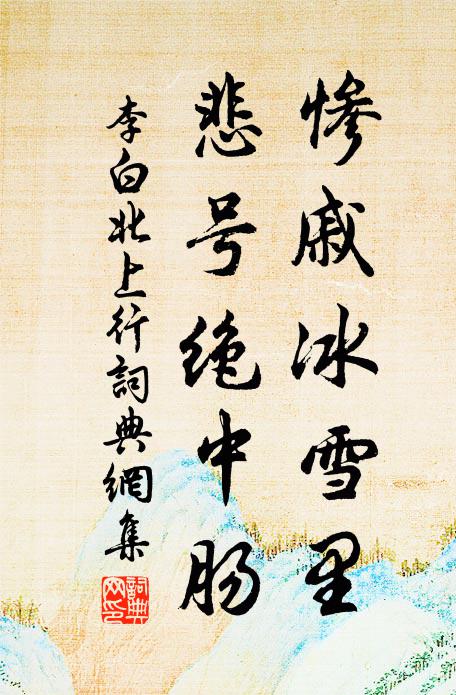 惨戚冰雪里
悲号绝中肠
李白北上行詞典網集
詞典
网印